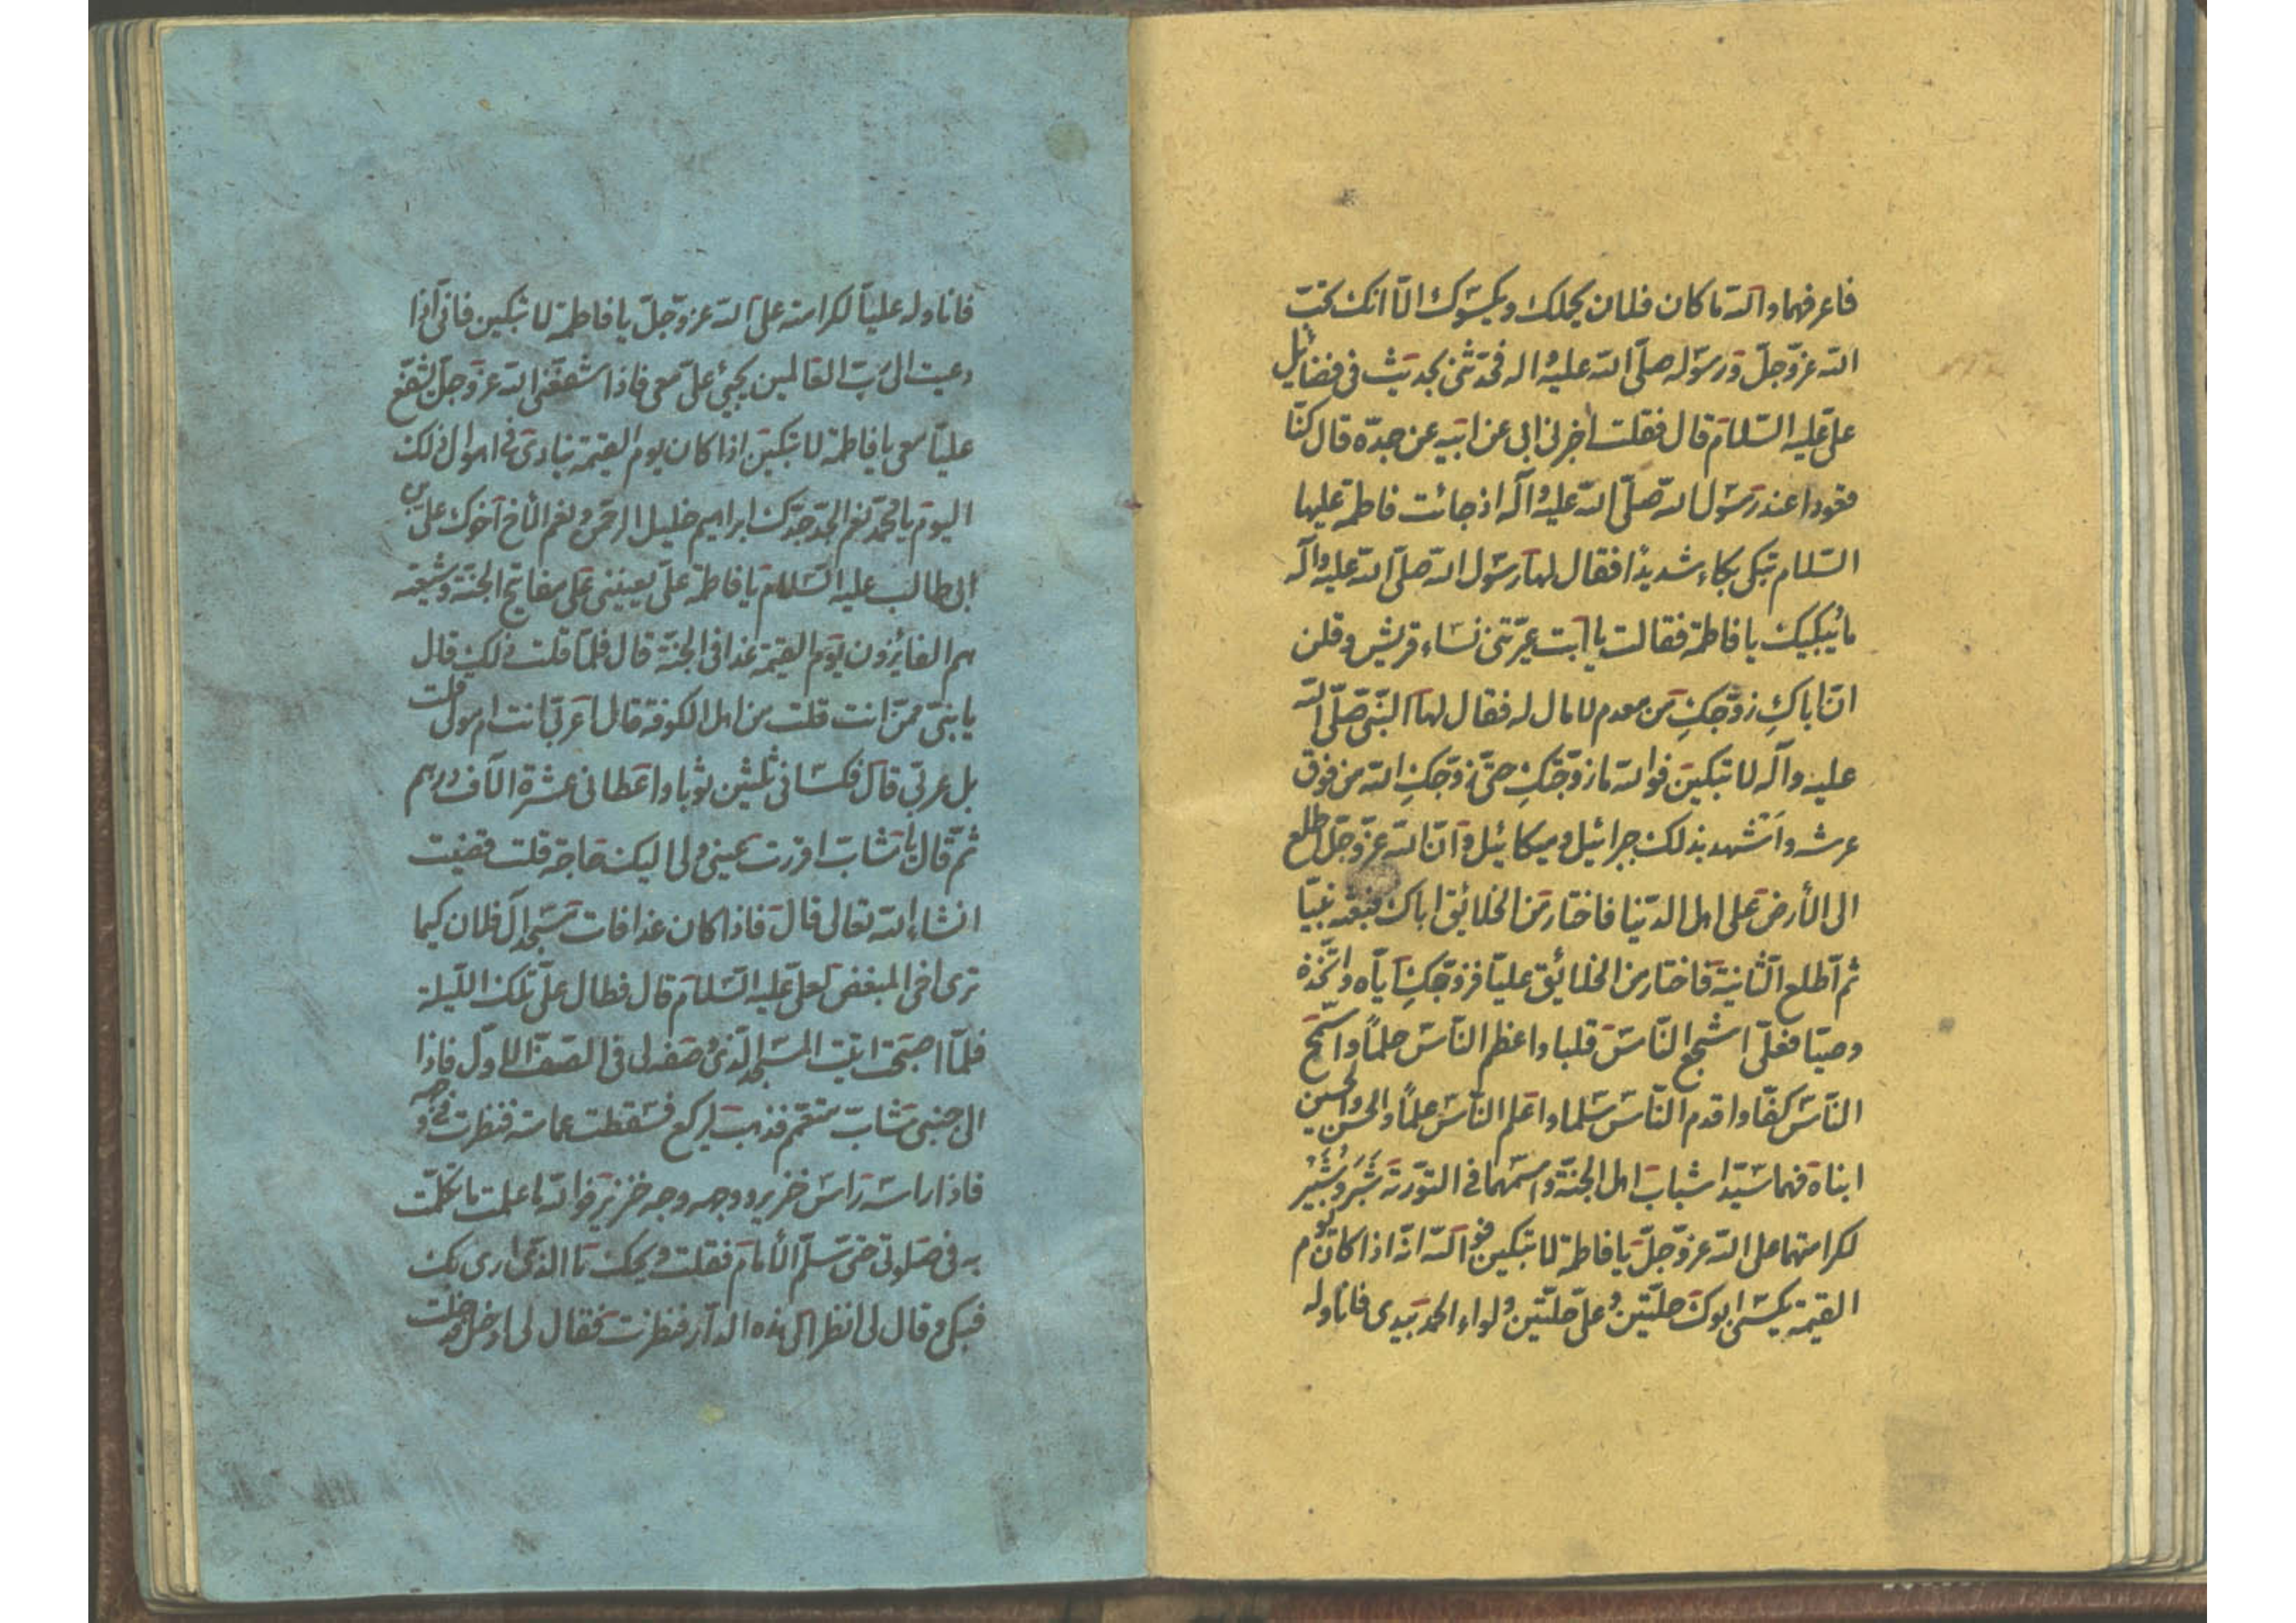 فاعرفهما والله ما كان فلان يحملك ويكسوك الا انك تحب
الله عزّ وجلّ ورسوله صلّى الله عليه واله فحدثنى بحديث فى فضائل
علىّ عليه السّلام قال فقلت اخبرنى ابى عن ابيه عن جدّه قال كنّا
قعودا عند رسول الله صلّى الله عليه وآله اذ جائت فاطمة عليها
السّلام تبكى بكاء شديدا فقال لها رسول الله صلّى الله عليه وآله
ما يُبكيك يا فاطمة فقالت يا ابت عيّرتنى نساء قريش وقلن
انّ اباكِ زوّجكِ من معدم لا مال له فقال لها النّبىّ صلّى الله
عليه وآله لا تبكين فوالله ما زوّجتكِ حتّى زوّجكِ الله من فوق
عرشه واَشهد بذلك جبرائيل وميكائيل وانّ الله عزّ وجلّ اطلع
الى الأرض على اهل الدّنيا فاختار من الخلائق اباك فبعثه نبيّا
ثم اطلع الثانية فاختار من الخلائق عليّا فزوّجكِ ايّاه واتّخذه
وصيّا فعلىّ اشجع النّاس قلبا واعظم النّاس حلمًا واسمح
النّاس كفّا واقدم النّاس سلما واعلم النّاس علمًا والحسن والحسين
ابناه فهما سيّدا شباب اهل الجنّة واسمهما فى التورٰة شَبَّر وشُبَّير
لكرامتهما على الله عزّ وجلّ يا فاطمة لا تبكين فو الله انّه اذا كان يوم
القيمة يكسى ابوك حلّتين وعلىّ حلّتين ولواء الحمد بيدى فاناوله
فاناوله عليّا لكرامته على الله عز وجلّ يا فاطمة لا تبكين فانى اذا
دعيت الى ربّ العالمين يجئ علىّ معى فاذا شفعّنى الله عزّ وجلّ شفّع
عليّا معى يا فاطمة لا تبكين اذا كان يوم القيمة ينادى فى اهوال ذلك
اليوم يا محمّد نعم الجدّ جدّك ابراهيم خليل الرحمن ونعم الأخ اخوك علىّ بن
ابى طالب عليه السّلام يا فاطمة علىّ يعيننى على مفاتيح الجنّة وشيعته
هم الفائزون يوم القيمة غدا فى الجنّة قال فلمّا قلت ذلك قال
يا بنىّ ممّن انت قلت من اهل الكوفة قال اعربىّ انت ام مولى قلت
بل عربىّ قال فكسانى ثلثين ثوبا واعطانى عشرة الآف درهم
ثمّ قال يا شابّ اقررت عينى ولى اليك حاجة قلت قضيت
انشاء الله تعالى قال فاذا كان غدا فات مسجد آل فلان كيما
ترى اخى المبغض لعلىّ عليه السّلام قال فطال علىّ تلك اللّيلة
فلمّا اصبحت اتيت المسجد الّذى وصف لى فى الصفّ الاوّل فاذا
الى جنبى شابّ متعمّم فذهب ليركع فسقطت عمامته فنظرت فى وجهه
فاذا راسه راس خنزير ووجهه وجه خنزير فوالله ما علمت ما تكلّمت
به فى صلوتى حتى سلّم الأمام فقلت ويحك ما الذى ارى بك
فبكى وقال لى انظر الى هذه الدّار فنظرت فقال لى ادخل فدخلت